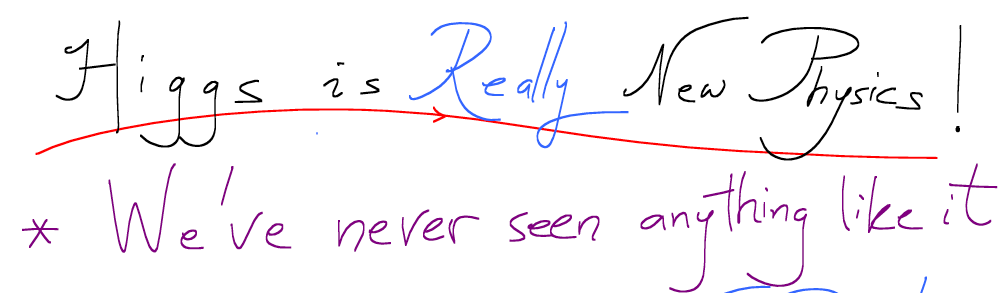 Higgs is Really New Physics!
* We've never seen anything like it